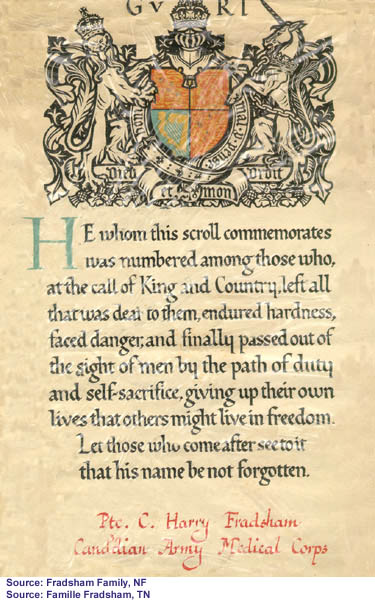 G V R I
Dieu et mon Droit
HE whom this scroll commemorates
was numbered among those who,
at the call of King and Country, left all
that was dear to them, endured hardness,
faced danger, and finally passed out of
the sight of men by the path of duty
and self-sacrifice, giving up their own
lives that others might live in freedom.
Let those who come after see to it
that his name be not forgotten.
Pte. C. Harry Fradsham
Canadian Army Medical Corps
Source: Fradsham Family, NF
Source: Famille Fradsham, TN